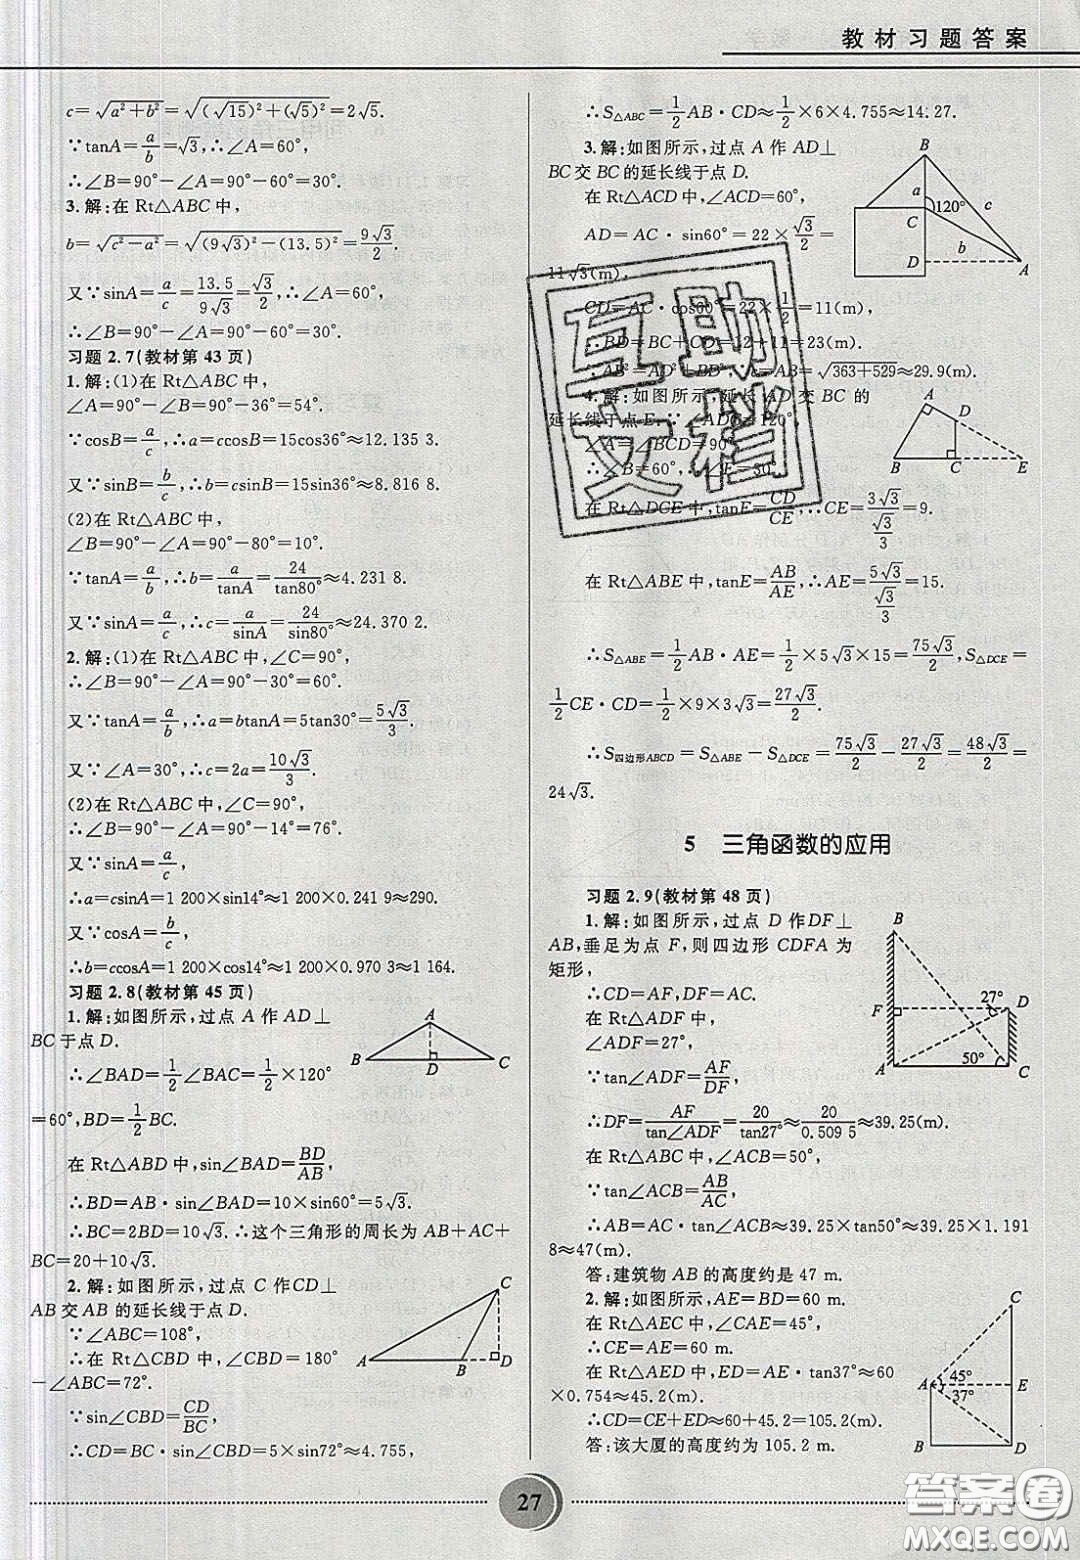 教材习题答案
c=√(a²+b²)=√((√15)²+(√5)²)=2√5.
∵tanA=a/b=√3,∴∠A=60°,
∴∠B=90°-∠A=90°-60°=30°.
3.解:在Rt△ABC中,
b=√(c²-a²)=√((9√3)²-(13.5)²)=9√3/2.
又∵sinA=a/c=13.5/9√3=√3/2,∴∠A=60°,
∴∠B=90°-∠A=90°-60°=30°.
习题2.7(教材第43页)
1.解:(1)在Rt△ABC中,
∠A=90°-∠B=90°-36°=54°.
∵cosB=a/c,∴a=ccosB=15cos36°≈12.135 3.
又∵sinB=b/c,∴b=csinB=15sin36°≈8.816 8.
(2)在Rt△ABC中,
∠B=90°-∠A=90°-80°=10°.
∵tanA=a/b,∴b=a/tanA=24/tan80°≈4.231 8.
又∵sinA=a/c,∴c=a/sinA=24/sin80°≈24.370 2.
2.解:(1)在Rt△ABC中,∠C=90°,
∴∠B=90°-∠A=90°-30°=60°.
又∵tanA=a/b,∴a=btanA=5tan30°=5√3/3.
又∵∠A=30°,∴c=2a=10√3/3.
(2)在Rt△ABC中,∠C=90°,
∴∠B=90°-∠A=90°-14°=76°.
又∵sinA=a/c,
∴a=csinA=1 200×sin14°≈1 200×0.241 9≈290.
又∵cosA=b/c,
∴b=ccosA=1 200×cos14°≈1 200×0.970 3≈1 164.
习题2.8(教材第45页)
1.解:如图所示,过点A作AD⊥
BC于点D.
∴∠BAD=1/2∠BAC=1/2×120°
=60°,BD=1/2BC.
A
B
D
C
在Rt△ABD中,sin∠BAD=BD/AB,
∴BD=AB·sin∠BAD=10×sin60°=5√3.
∴BC=2BD=10√3.∴这个三角形的周长为AB+AC+
BC=20+10√3.
2.解:如图所示,过点C作CD⊥
AB交AB的延长线于点D.
∵∠ABC=108°,
∴在Rt△CBD中,∠CBD=180°
-∠ABC=72°.
∵sin∠CBD=CD/BC,
∴CD=BC·sin∠CBD=5×sin72°≈4.755,
C
A
B
D
∴S△ABC=1/2AB·CD≈1/2×6×4.755≈14.27.
3.解:如图所示,过点A作AD⊥
BC交BC的延长线于点D.
在Rt△ACD中,∠ACD=60°,
AD=AC·sin60°=22×√3/2=
11√3(m),
CD=AC·cos60°=22×1/2=11(m),
∴BD=BC+CD=12+11=23(m).
∴AB²=AD²+BD²,∴c=AB=√(363+529)≈29.9(m).
B
a
120°
c
C
b
D
A
4.解:如图所示,延长AD交BC的
延长线于点E.∵∠ADC=120°,
∠A=∠BCD=90°,
∴∠B=60°,∴∠E=30°.
在Rt△DCE中,tanE=CD/CE,∴CE=3√3/(√3/3)=9.
在Rt△ABE中,tanE=AB/AE,∴AE=5√3/(√3/3)=15.
∴S△ABE=1/2AB·AE=1/2×5√3×15=75√3/2,S△DCE=
1/2CE·CD=1/2×9×3√3=27√3/2.
∴S四边形ABCD=S△ABE-S△DCE=75√3/2-27√3/2=48√3/2=
24√3.
A
D
B
C
E
5 三角函数的应用
习题2.9(教材第48页)
1.解:如图所示,过点D作DF⊥
AB,垂足为点F,则四边形CDFA为
矩形,
∴CD=AF,DF=AC.
在Rt△ADF中,
∠ADF=27°,
∵tan∠ADF=AF/DF,
∴DF=AF/tan∠ADF=20/tan27°≈20/0.509 5≈39.25(m).
在Rt△ABC中,∠ACB=50°,
∵tan∠ACB=AB/AC,
∴AB=AC·tan∠ACB≈39.25×tan50°≈39.25×1.191
8≈47(m).
答:建筑物AB的高度约是47 m.
B
F
27°
D
50°
A
C
2.解:如图所示,AE=BD=60 m.
在Rt△AEC中,∠CAE=45°,
∴CE=AE=60 m.
在Rt△AED中,ED=AE·tan37°≈60
×0.754≈45.2(m).
∴CD=CE+ED≈60+45.2=105.2(m).
答:该大厦的高度约为105.2 m.
C
A
45°
37°
E
B
D
互助
文档
27
答案圈
MXQE.COM